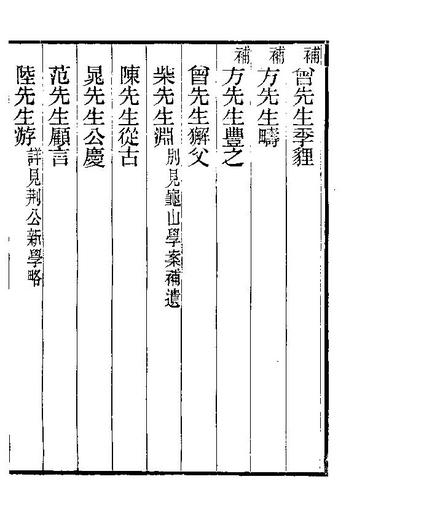 補曾先生季貍
補方先生疇
補方先生豐之
曾先生獬父
柴先生淵別見龜山學案補遺
陳先生從古
晁先生公慶
范先生顧言
陸先生游詳見荆公新學略